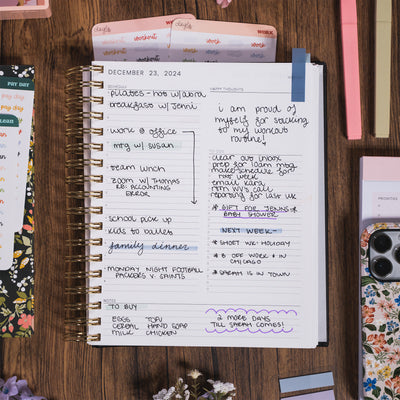 DECEMBER 23, 2024
SCHEDULE
pilates - hot w/ laura
breakfast w/ Jenni
work @ office
mtg w/ susan
team lunch
zoom w/ Thomas
RE: ACCOUNTING
ERROR
school pick up
kids to ballet
family dinner
MONDAY NIGHT FOOTBALL
PACKERS V. SAINTS
NOTES
TO BUY
EGGS TOFU
CEREAL HAND SOAP
MILK CHICKEN
HAPPY THOUGHTS
i am proud of
myself for sticking
to my workout
routine!
TO DO
clear out inbox
prep for 10am mtg
make schedule for
next week
email kara
reporting for last wk
* GIFT FOR JENNI'S *
BABY SHOWER
NEXT WEEK -
* SHORT WK - HOLIDAY
* B OFF WORK + IN
CHICAGO
* SARAH IS IN TOWN
2 MORE DAYS
TILL SARAH COMES!
WORK
workout
PAY DAY
PAY DAY
pay day
PRIORITIES